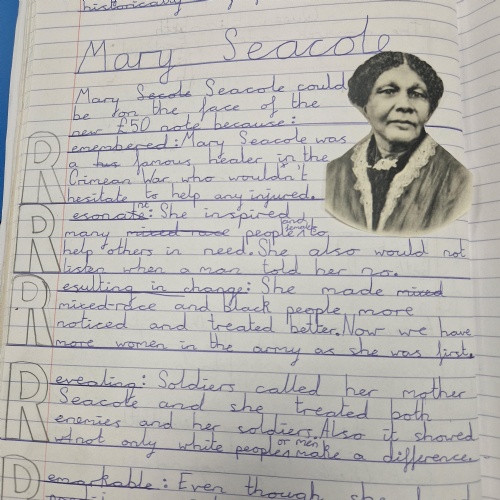 historically
Mary Seacole
Mary Secole Seacole could
be on the face of the
new £50 note because:
Remembered: Mary Seacole was
a famous healer in the
Crimean War who wouldn't
hesitate to help any injured.
Resonate: She inspired
many mixed race people and females to
help others in need. She also would not
listen when a man told her no.
Resulting in change: She made mixed
mixed-race and black people more
noticed and treated better. Now we have
more women in the army as she was first.
Revealing: Soldiers called her mother
Seacole and she treated both
enemies and her soldiers. Also it showed
not only white people or men make a difference.
Remarkable: Even though she had